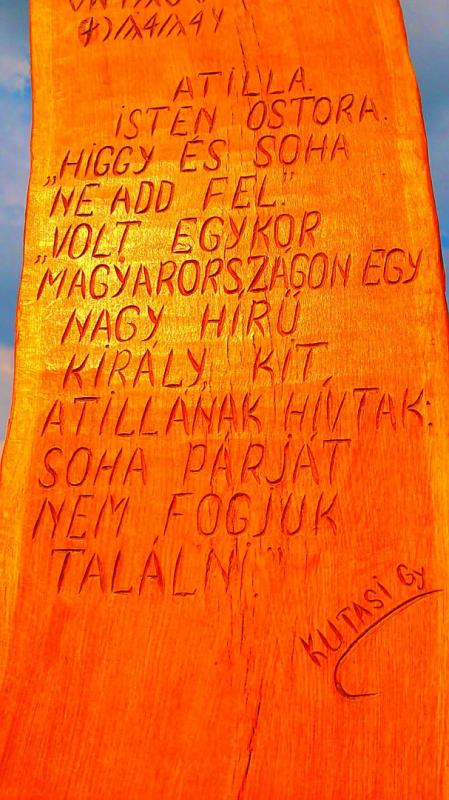 ATILLA.
ISTEN OSTORA.
„HIGGY ÉS SOHA
NE ADD FEL."
„VOLT EGYKOR
MAGYARORSZÁGON EGY
NAGY HÍRŰ
KIRÁLY, KIT
ATILLÁNAK HÍVTAK:
SOHA PÁRJÁT
NEM FOGJUK
TALÁLNI."
KUTASI Gy